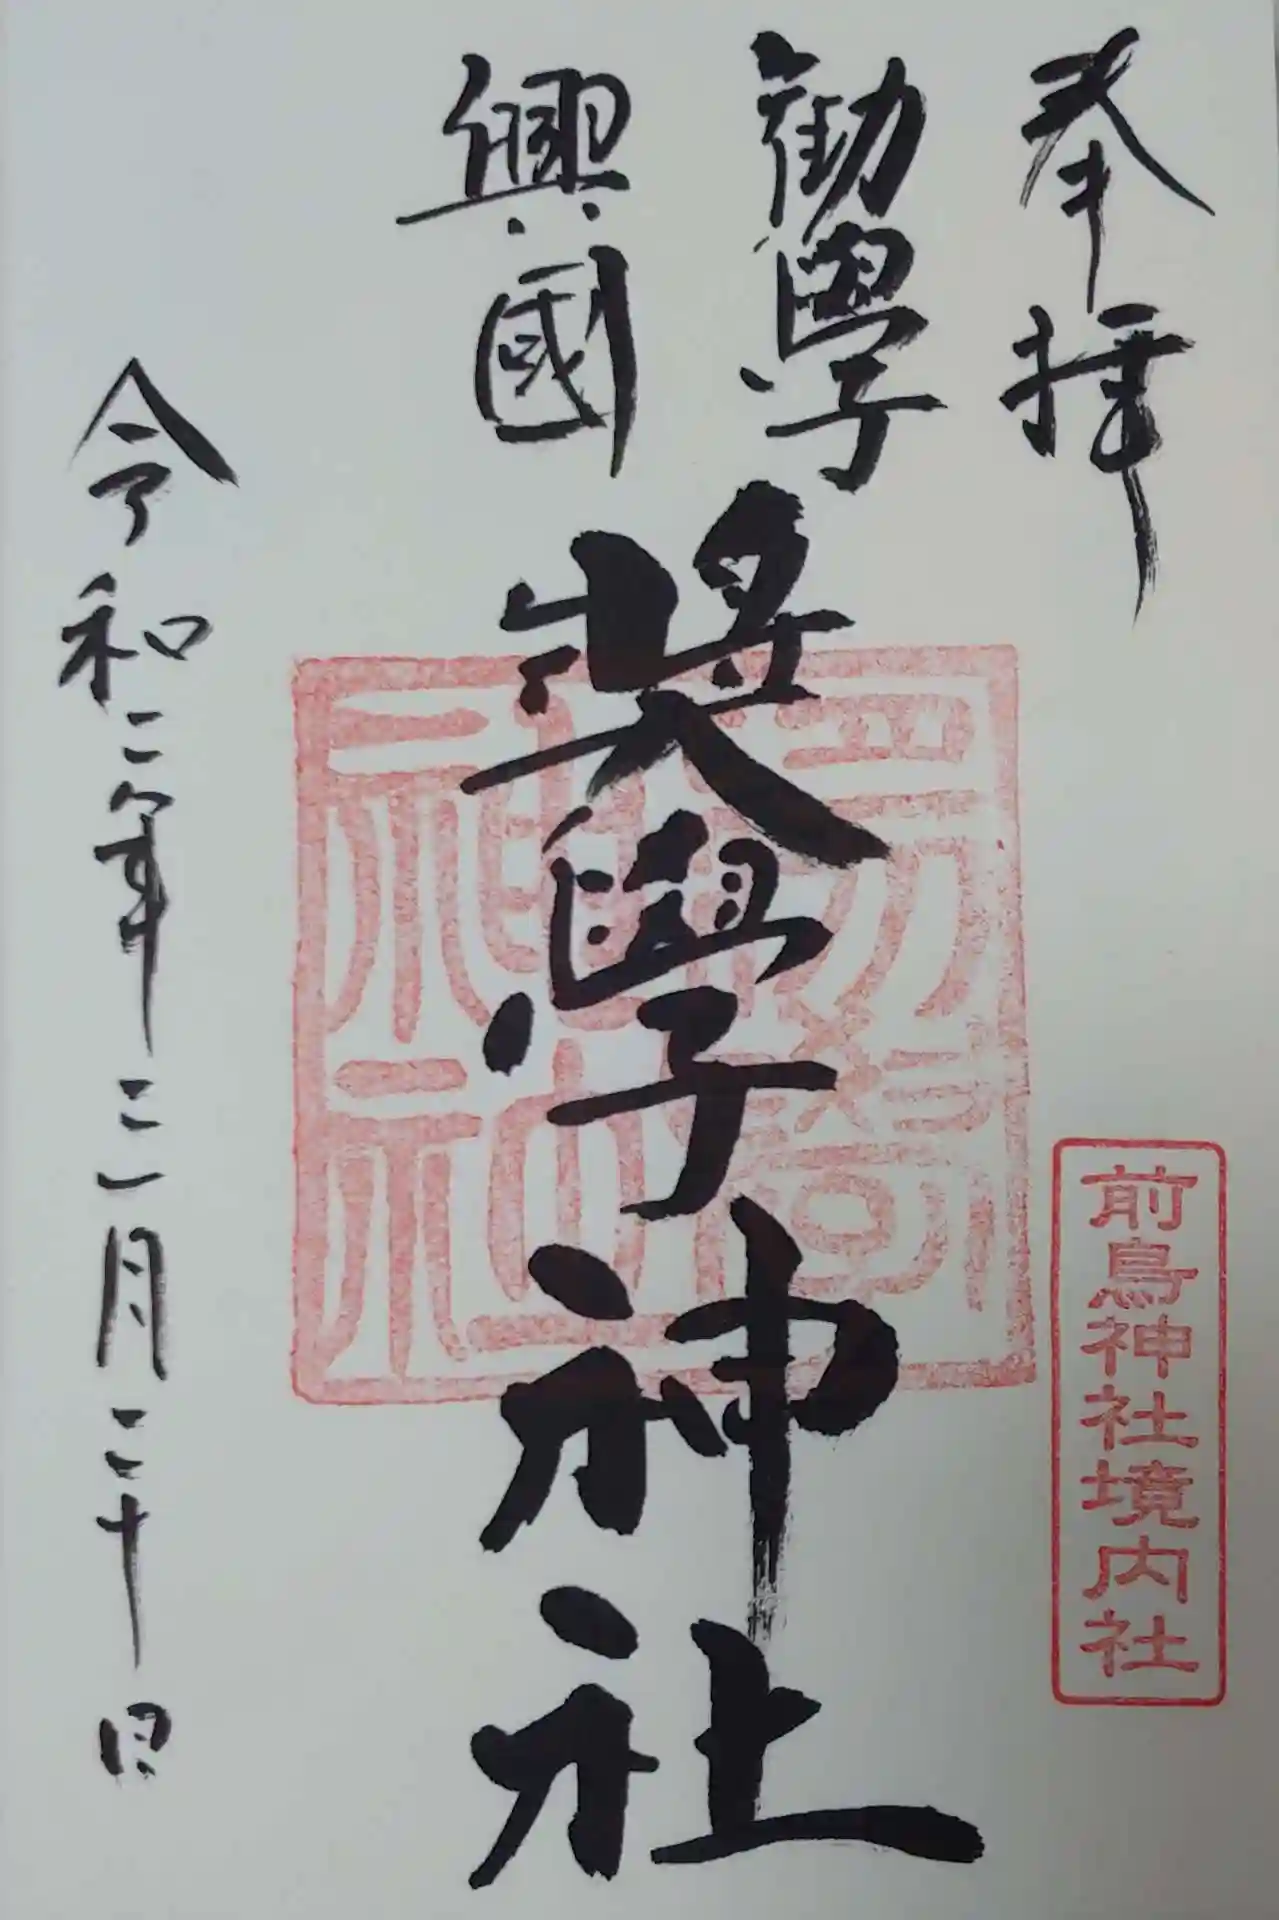 奉拝
前鳥神社境内社
勧學
興國
奬學神社
令和二年三月二十日